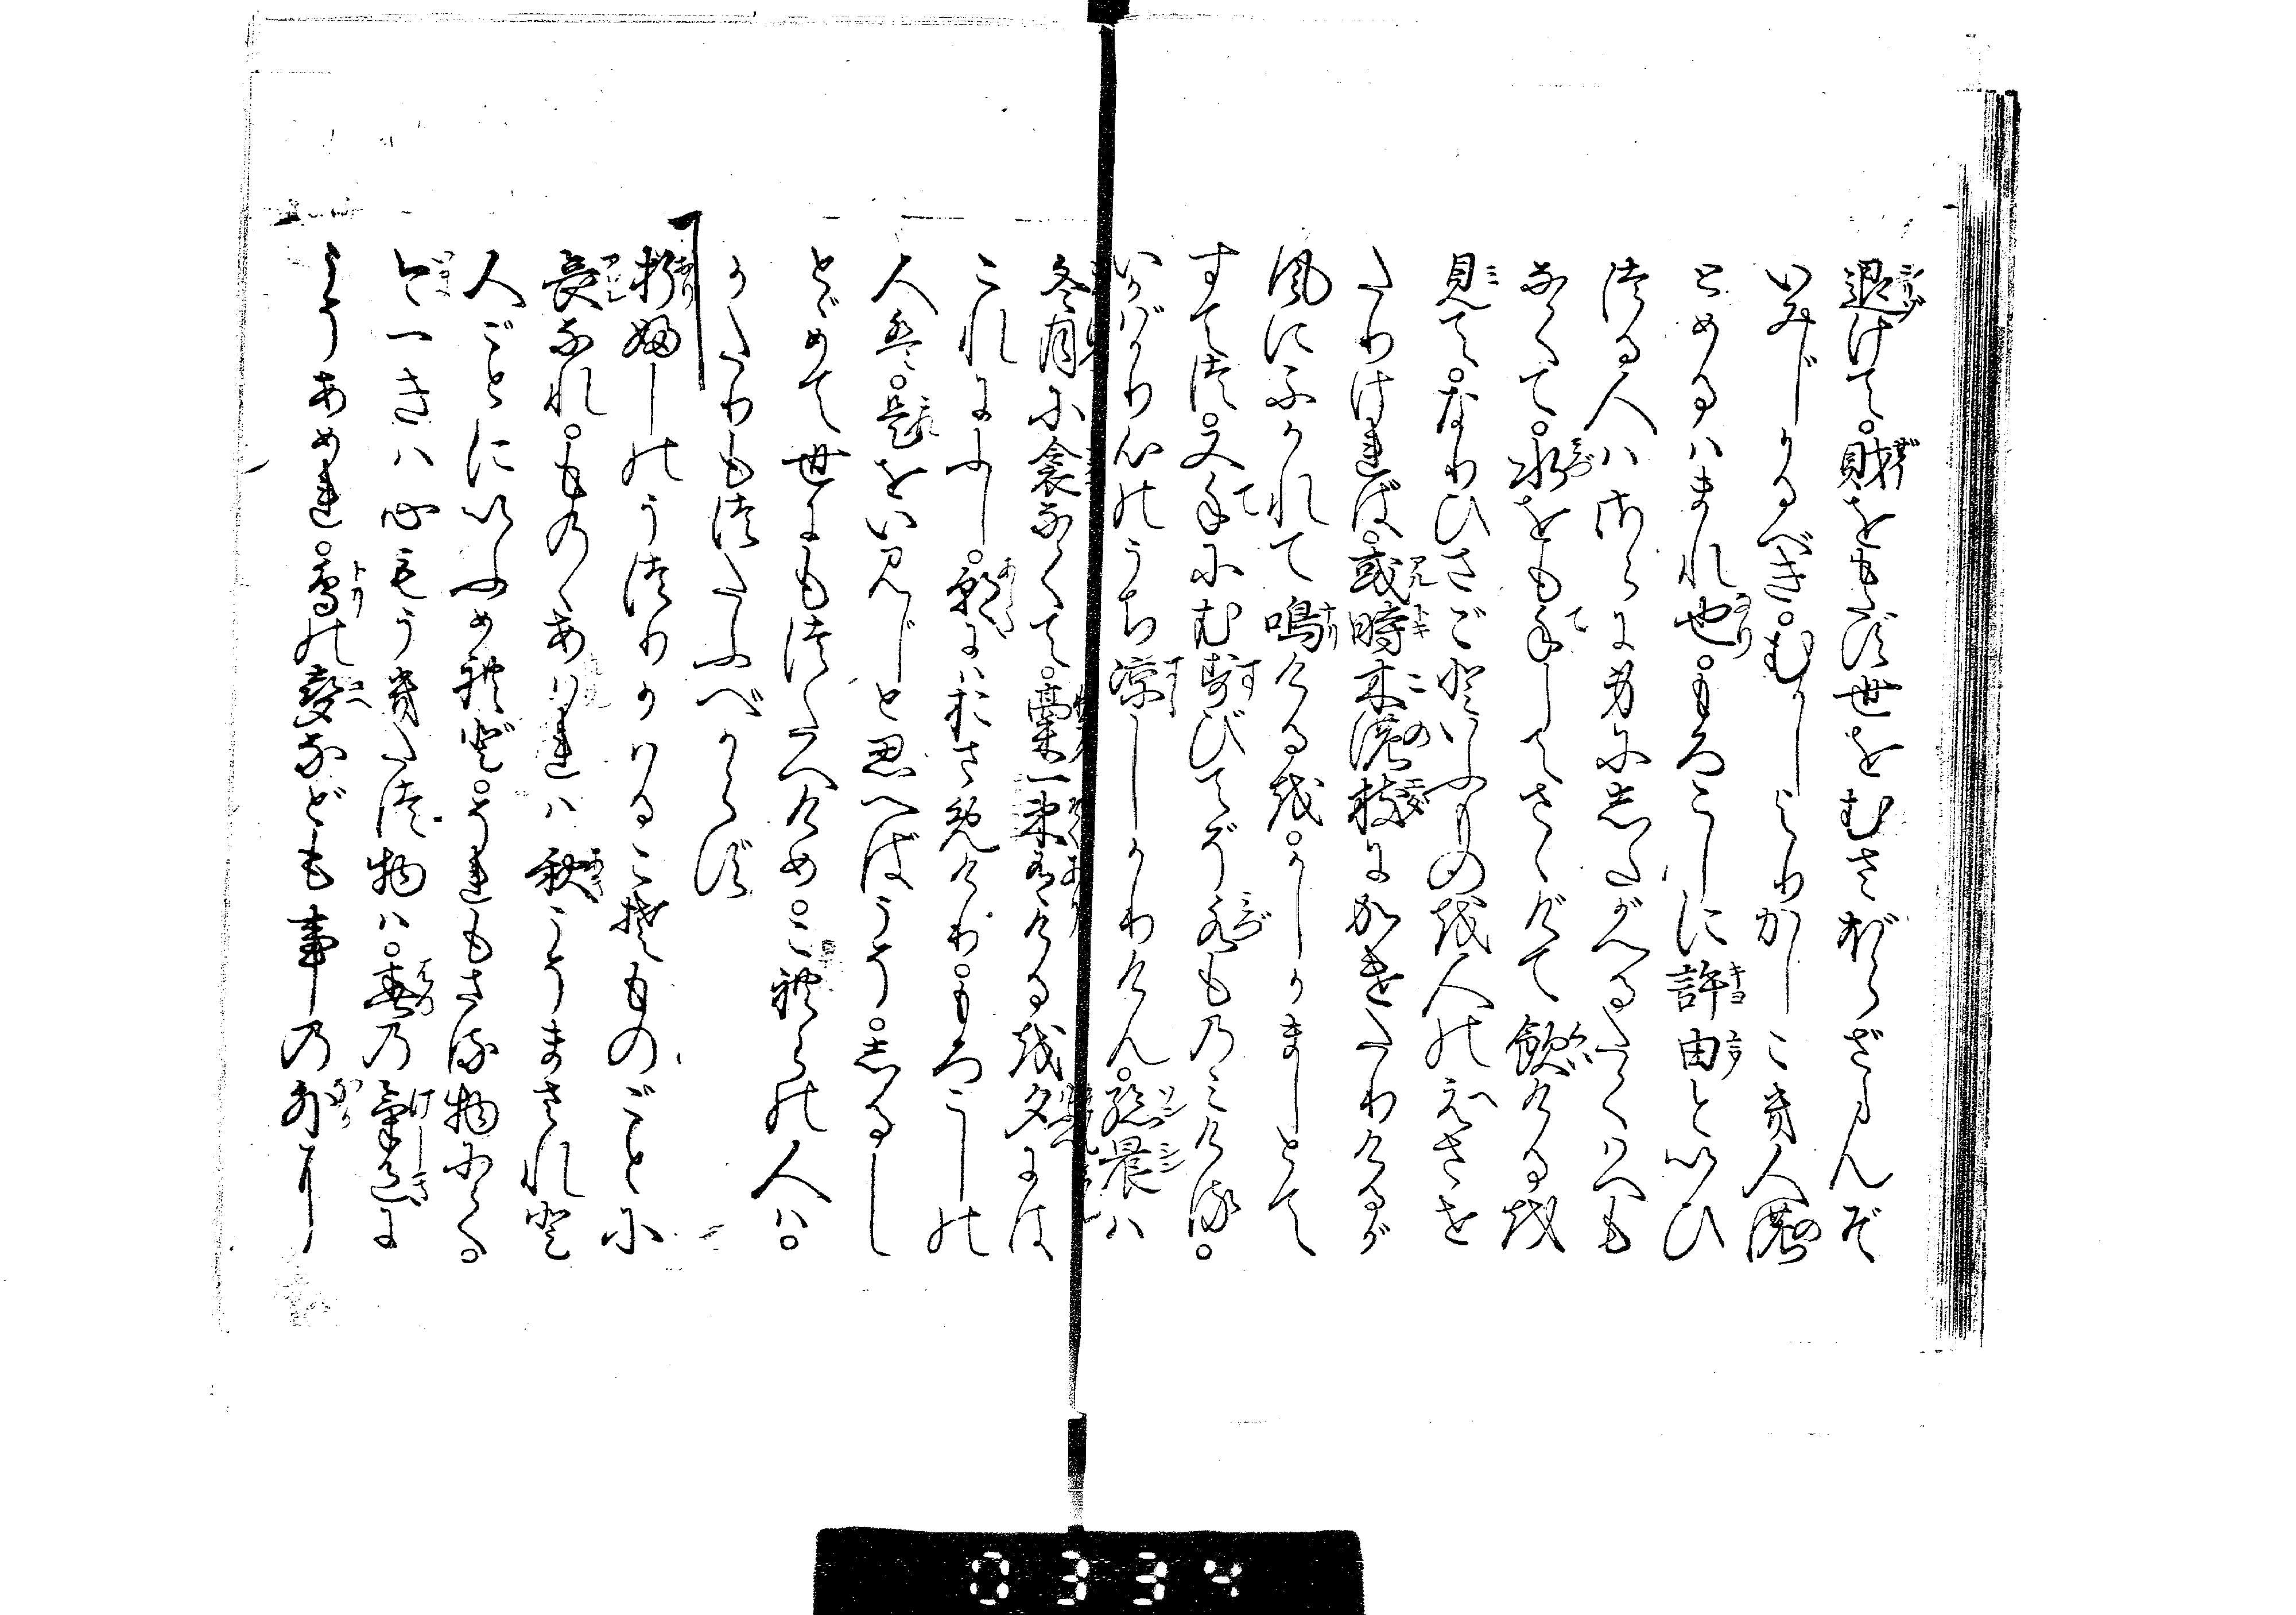 退けて。財をもたず世をむさぼらざらんぞ
いみじかるべき。むかしよりかしこき人の
とめるはまれ也。もろこしに許由といひ
つる人はさらに身にしたがへるたくはへも
なくて。水をも手してさゝげて飲ける を
見て。なりひさごといふものを人のえさせ
たりければ。或時木の枝にかけたりけるが
風にふかれて鳴けるを。かしかましとて
すてつ。又手にむすびてぞ水ものみける。
いかばかり心のうち涼しかりけん。孫晨は
冬月に衾なくて。藁一束有けるを夕には
これにふし。朝にはおさめけり。もろこしの
人は。是をいみじと思へばこそ。しるし
とゞめて世にもつたへけめ。これらの人は。
かたりもつたふべからず
折節のうつりかはるこそものごとに
哀なれ。ものゝあはれは秋こそまされと
人ごとにいふめれど。それもさる物にて。
今一きは心もうきたつ物は。春の氣色に
こそあめれ。鳥の聲なども事の外に
0334